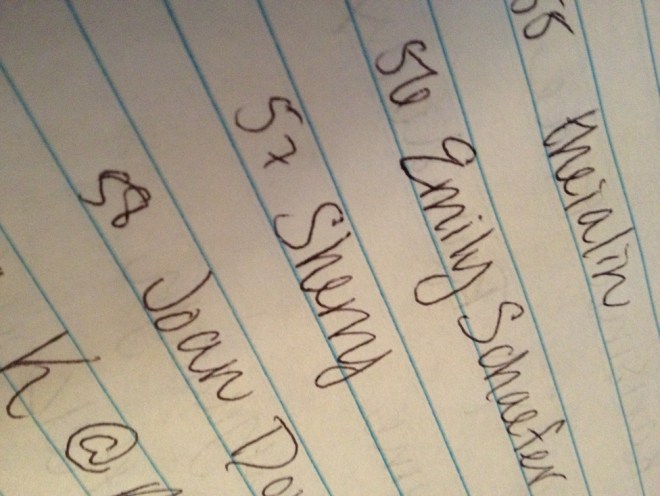 theralin
56 Emily Schaefer
57 Sherry
58 Joan
K @